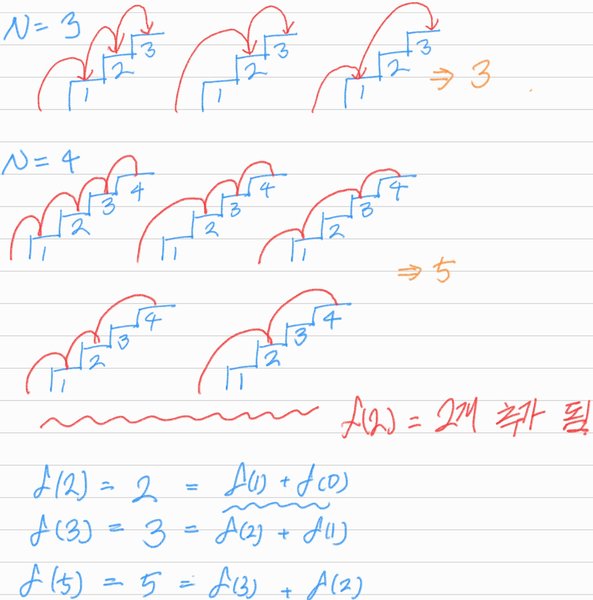 N = 3
1 2 3 1 2 3 1 2 3 ⇒ 3
N = 4
1 2 3 4 1 2 3 4 1 2 3 4
⇒ 5
1 2 3 4 1 2 3 4
f(2) = 2개 추가 됨
f(2) = 2 = f(1) + f(0)
f(3) = 3 = f(2) + f(1)
f(5) = 5 = f(3) + f(2)